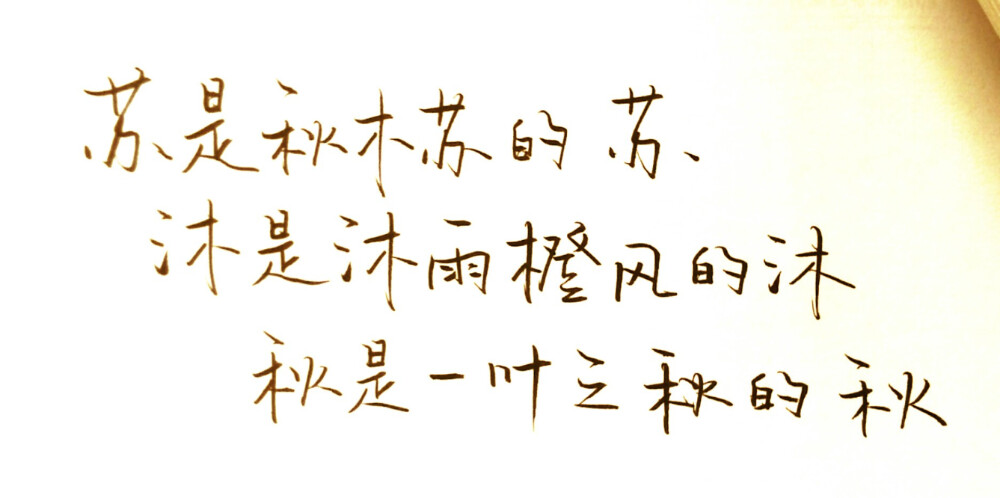 苏是秋木苏的苏、
沐是沐雨橙风的沐
秋是一叶之秋的秋